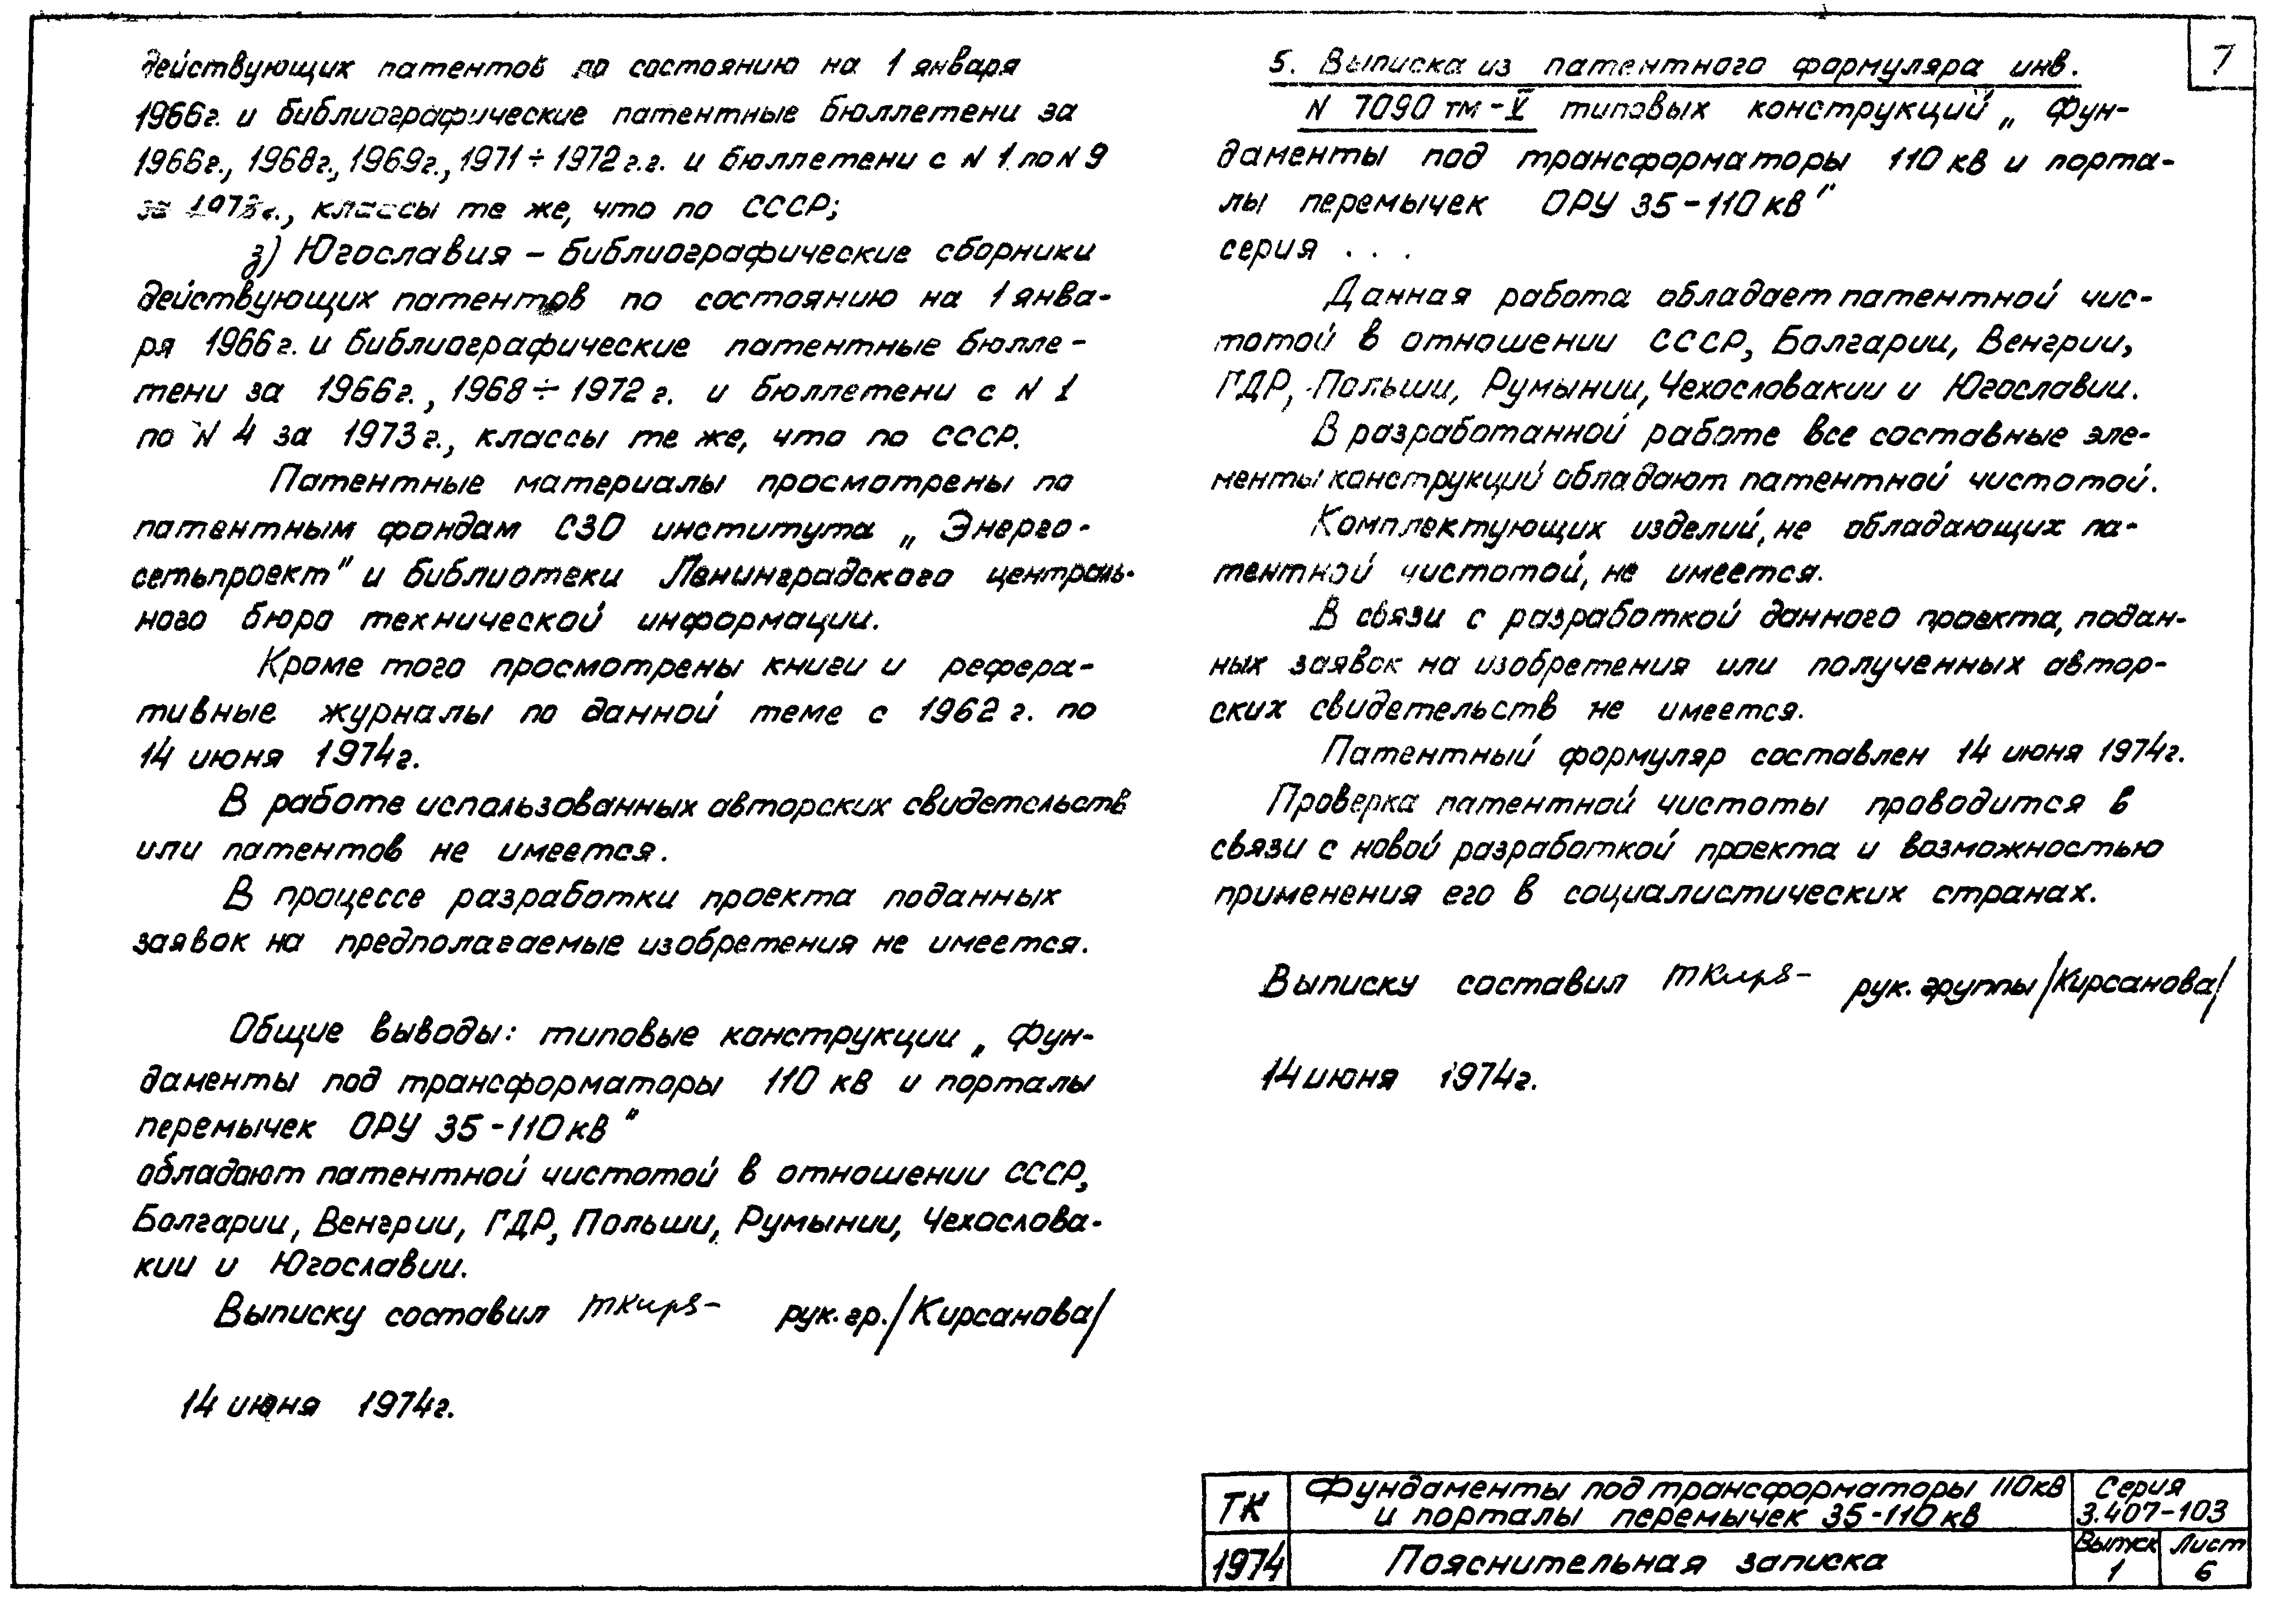 действующих патентов по состоянию на 1 января
1966г. и библиографические патентные бюллетени за
1966г., 1968г., 1969г., 1971÷1972г.г. и бюллетени с N 1 по N 9
за 1973г., классы те же, что по СССР;
з) Югославия - библиографические сборники
действующих патентов по состоянию на 1 янва-
ря 1966г. и библиографические патентные бюлле-
тени за 1966г., 1968÷1972г. и бюллетени с N 1
по N 4 за 1973г., классы те же, что по СССР.
Патентные материалы просмотрены по
патентным фондам СЗО института „Энерго-
сетьпроект" и библиотеки Ленинградского централь-
ного бюро технической информации.
Кроме того просмотрены книги и рефера-
тивные журналы по данной теме с 1962г. по
14 июня 1974г.
В работе использованных авторских свидетельств
или патентов не имеется.
В процессе разработки проекта поданных
заявок на предполагаемые изобретения не имеется.
Общие выводы: типовые конструкции „Фун-
даменты под трансформаторы 110 кв и порталы
перемычек ОРУ 35-110кв"
обладают патентной чистотой в отношении СССР,
Болгарии, Венгрии, ГДР, Польши, Румынии, Чехослова-
кии и Югославии.
Выписку составил рук.гр./Кирсанова/
14 июня 1974г.
7
5. Выписка из патентного формуляра инв.
N 7090 тм-V типовых конструкций „Фун-
даменты под трансформаторы 110 кв и порта-
лы перемычек ОРУ 35-110кв"
серия . . .
Данная работа обладает патентной чис-
тотой в отношении СССР, Болгарии, Венгрии,
ГДР, Польши, Румынии, Чехословакии и Югославии.
В разработанной работе все составные эле-
менты конструкций обладают патентной чистотой.
Комплектующих изделий, не обладающих па-
тентной чистотой, не имеется.
В связи с разработкой данного проекта, подан-
ных заявок на изобретения или полученных автор-
ских свидетельств не имеется.
Патентный формуляр составлен 14 июня 1974г.
Проверка патентной чистоты проводится в
связи с новой разработкой проекта и возможностью
применения его в социалистических странах.
Выписку составил рук.группы/Кирсанова/
14 июня 1974г.
ТК
1974
Фундаменты под трансформаторы 110кв
и порталы перемычек 35-110кв
Пояснительная записка
Серия
3.407-103
Выпуск
1
Лист
6